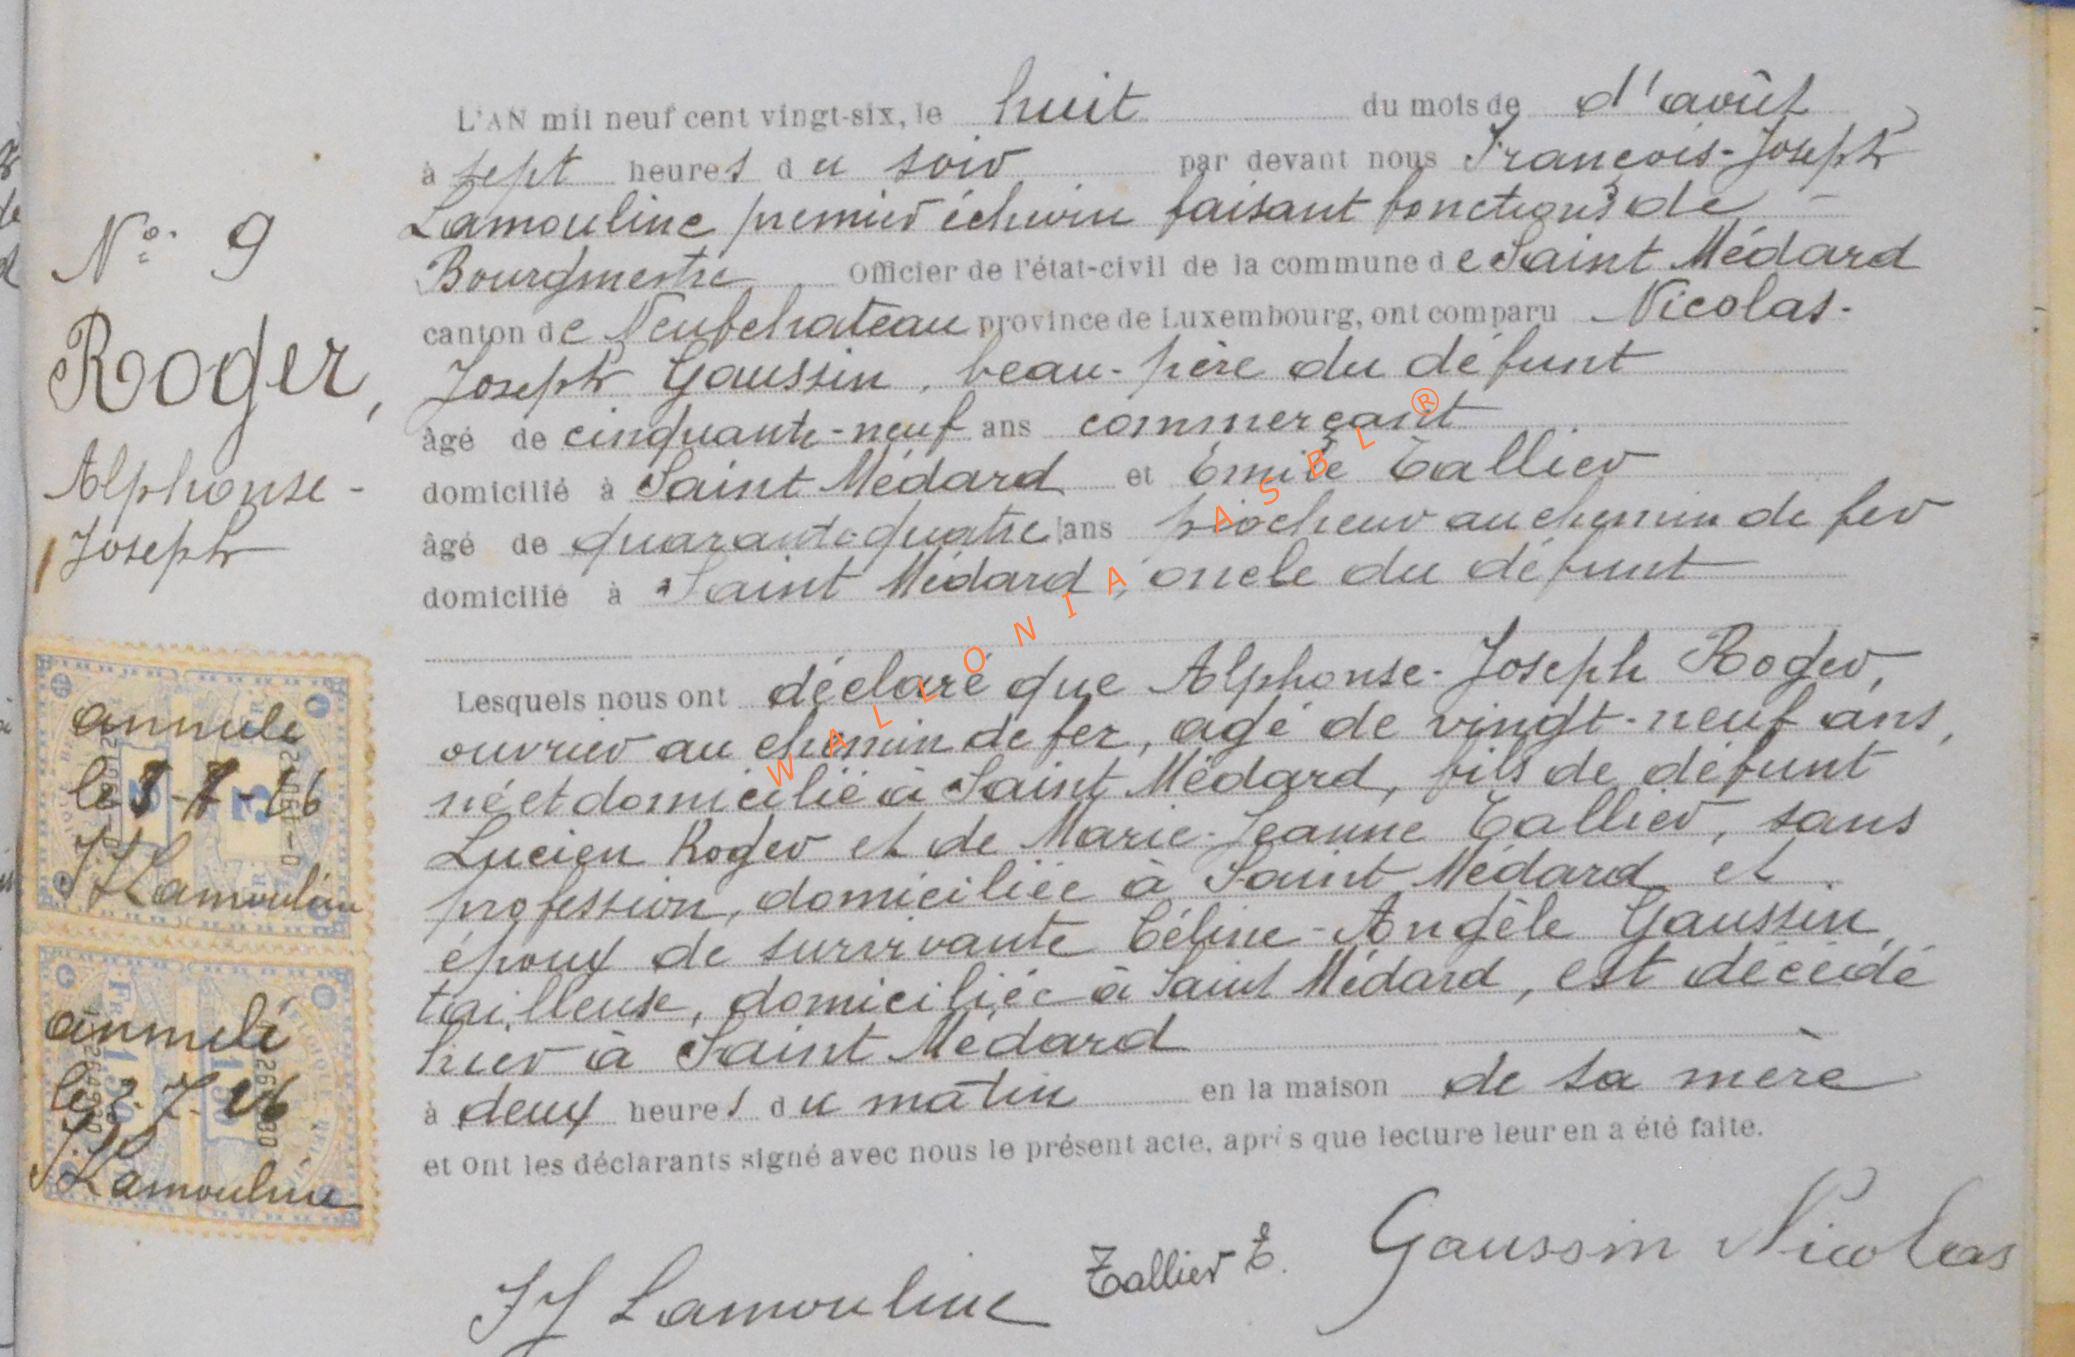 L'AN mil neuf cent vingt-six, le huit du mois de d'août
à sept heures du soir par devant nous François-Joseph
Lamouline premier échevin faisant fonctions de
Bourgmestre Officier de l'état-civil de la commune de Saint Médard
canton de Neufchateau province de Luxembourg, ont comparu Nicolas-
Joseph Gaussin, beau-père du défunt
âgé de cinquante-neuf ans commerçant
domicilié à Saint Médard et Emile Tallier
âgé de quarante quatre ans piocheur au chemin de fer
domicilié à Saint Médard, oncle du défunt
Lesquels nous ont déclaré que Alphonse-Joseph Roger,
ouvrier au chemin de fer, agé de vingt-neuf ans,
né et domicilié à Saint Médard, fils de défunt
Lucien Roger et de Marie-Jeanne Tallier, sans
profession, domiciliée à Saint Médard et
époux de survivante Céline-Angèle Gaussin,
tailleuse, domiciliée à Saint Médard, est décédé
hier à Saint Médard
à deux heures du matin en la maison de sa mère
et ont les déclarants signé avec nous le présent acte, après que lecture leur en a été faite.
JJ Lamouline Tallier E. Gaussin Nicolas
No. 9
Roger,
Alphonse-
Joseph
annulé
J J Lamouline
annulé
Lamouline
WALLONIA ASBL ®